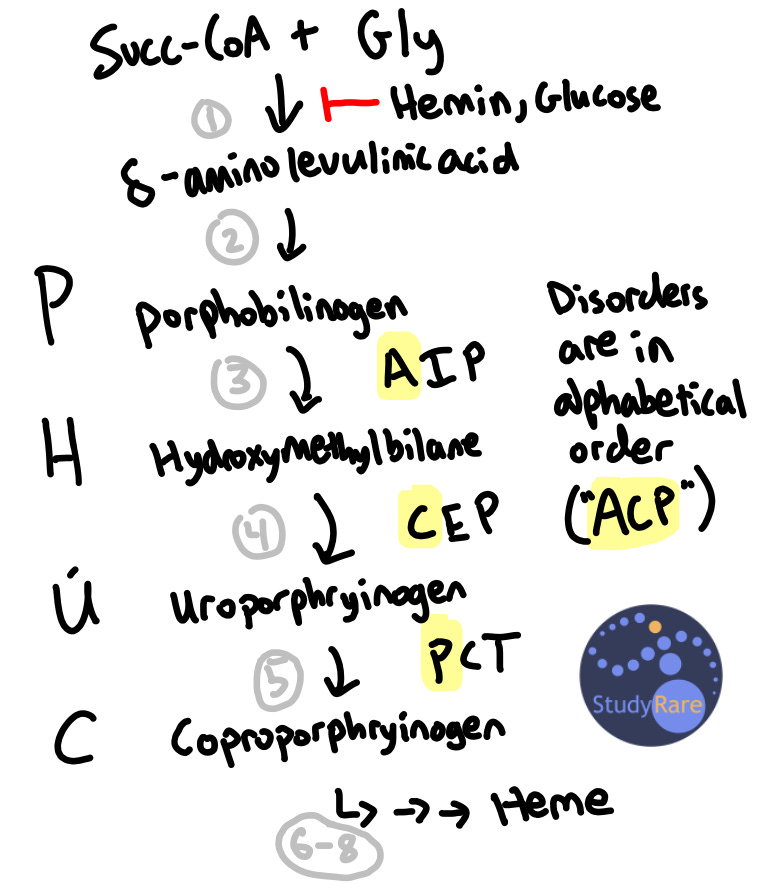 Succ-CoA + Gly
① Hemin, Glucose
δ-aminolevulinic acid
②
P Porphobilinogen
③ AIP
H Hydroxymethylbilane
④ CEP
Ú Uroporphryinogen
⑤ PCT
C Coproporphryinogen
6-8 Heme
Disorders
are in
alphabetical
order
("ACP")
StudyRare